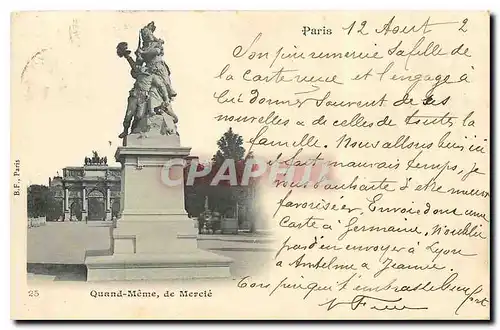 Paris 12 Août 2
Son pépin remercie sa fille de
la carte reçue et l'engage à
lui donner souvent de ses
nouvelles & de celles de toute la
famille. Nous allons bien ici
il fait mauvais temps, je
vous souhaite d'être mieux
favorisée. Envoie donc une
carte à Germaine. N'oublie
pas d'en envoyer à Lyon
à Anselme & Jeanne.
ton pépin qui t'embrasse bien fort
CPA PHOTO
B. F., Paris
25 Quand-Même, de Mercié